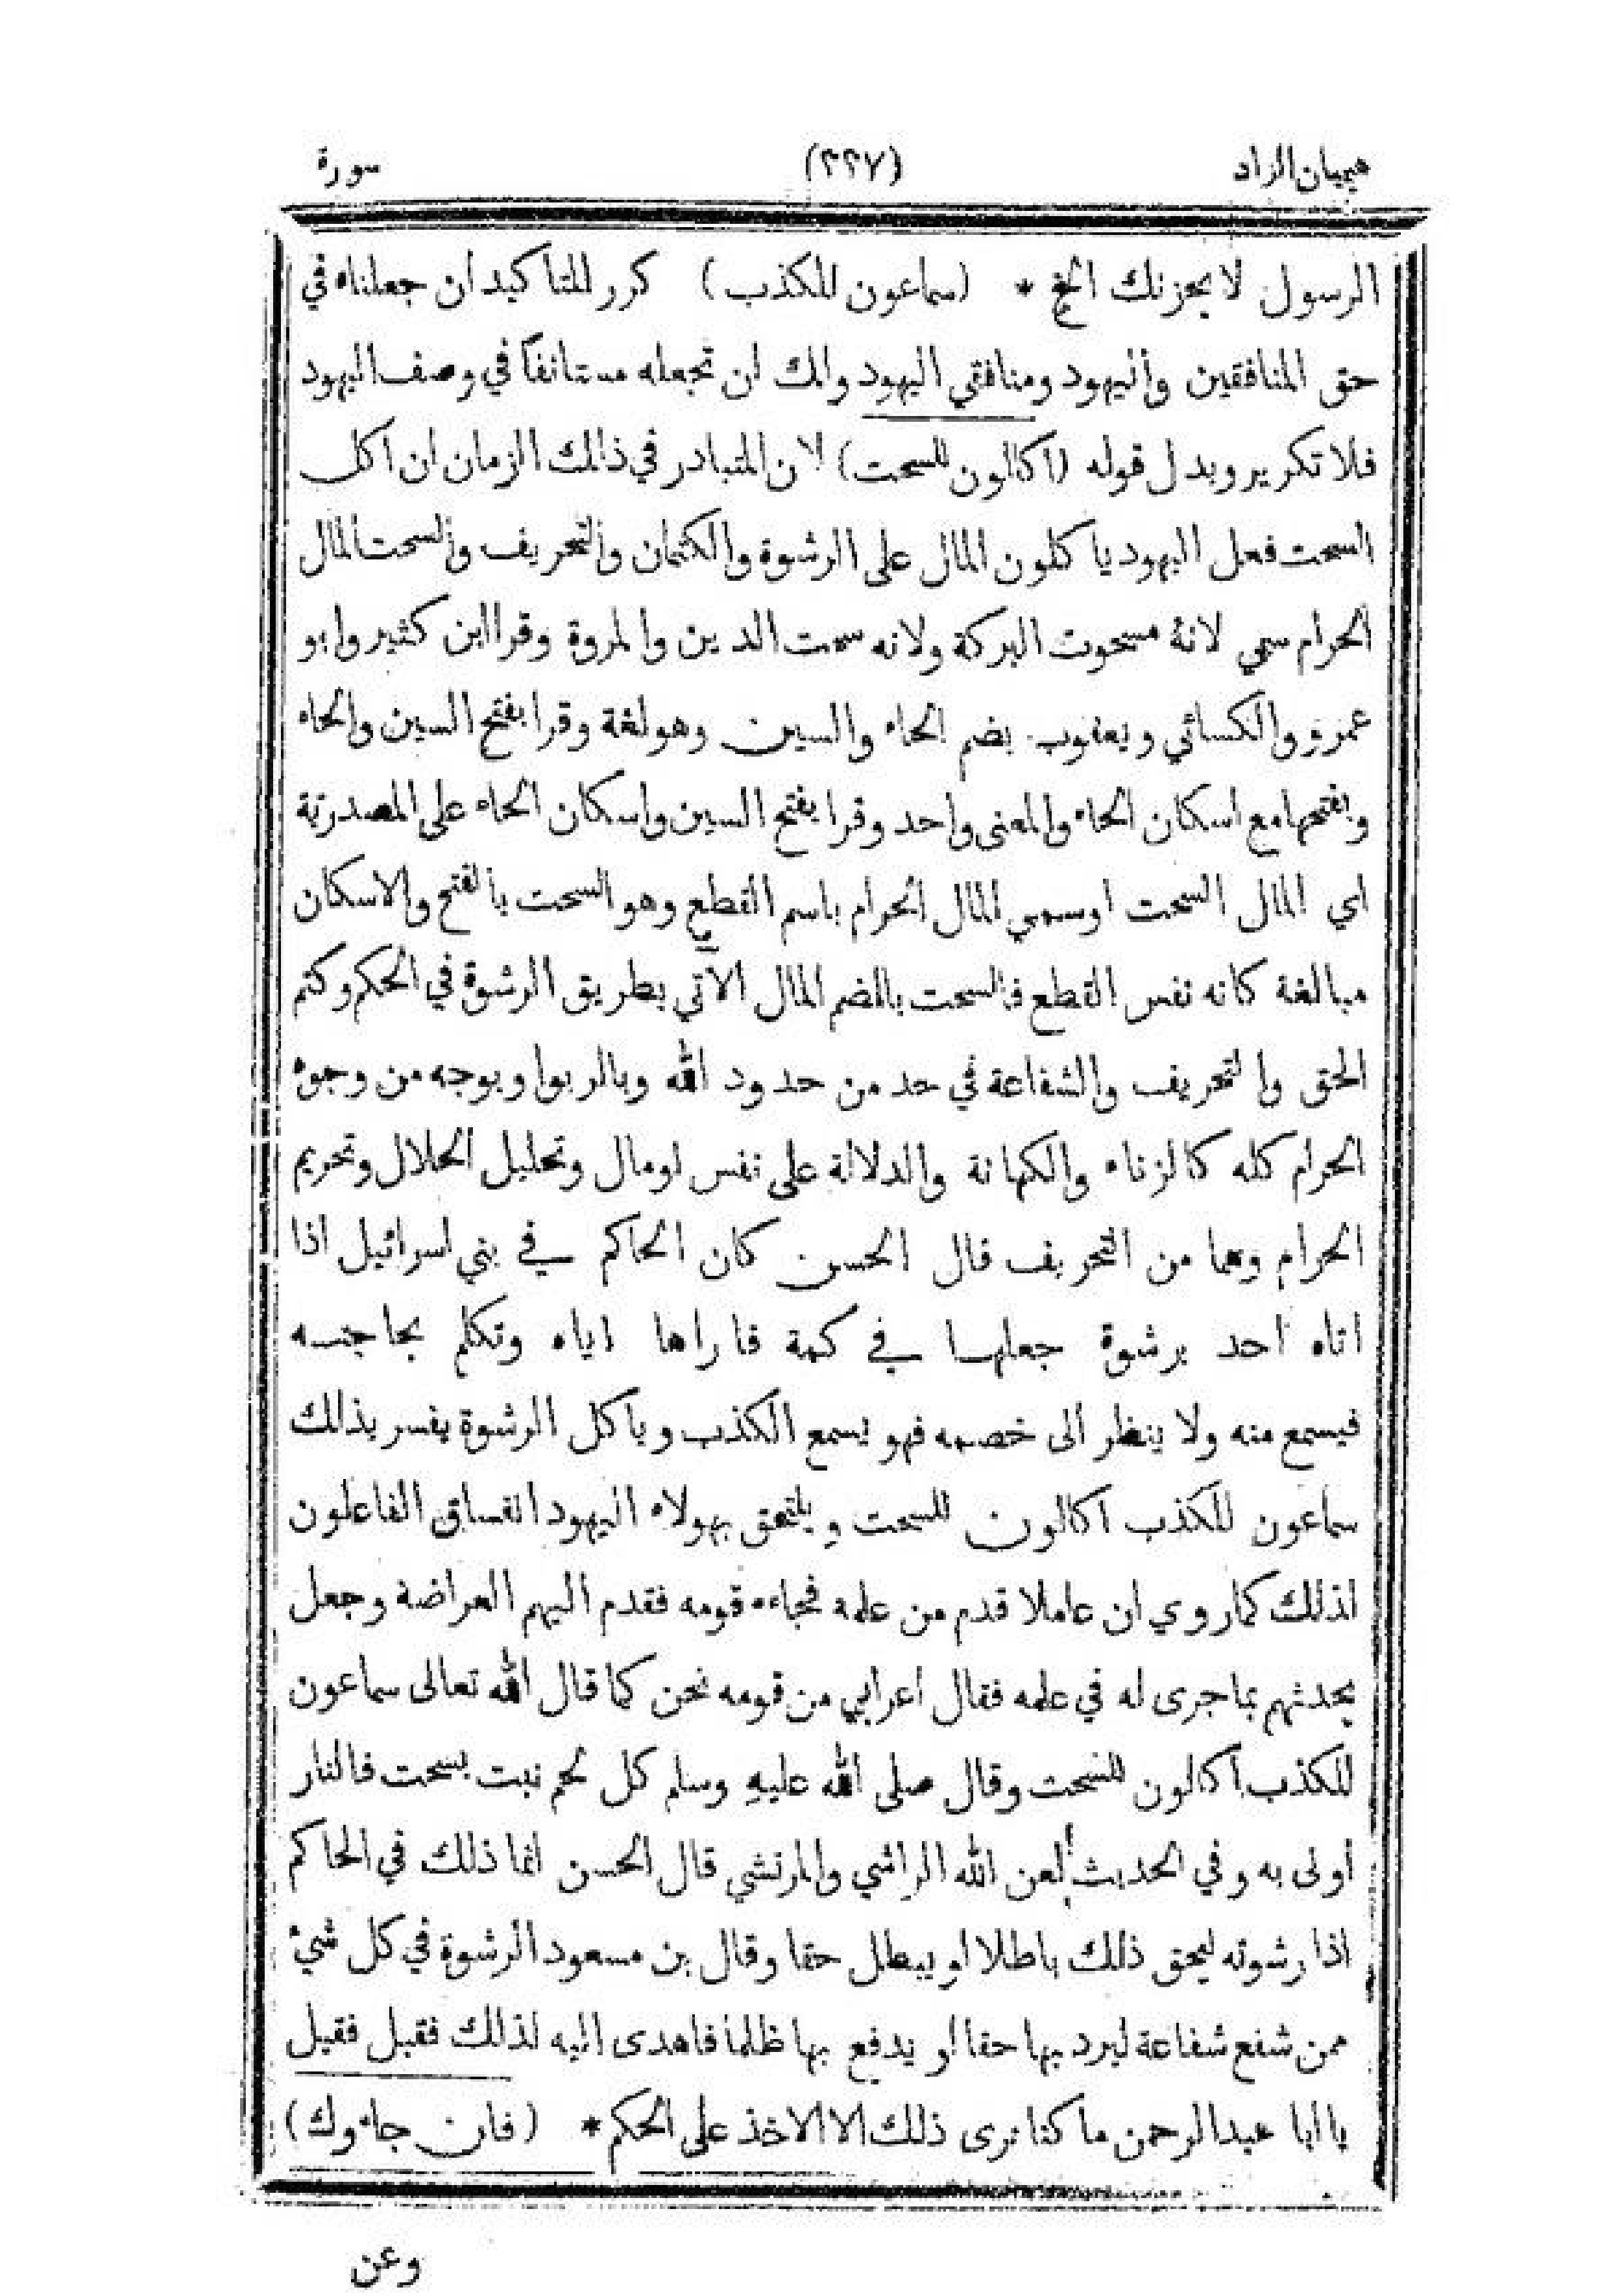 هيميان الزاد (٢٢٧) سورة
الرسول لا يحزنك الخ * (سماعون للكذب) كرر للتاكيد ان جعلناه في
حق المنافقين واليهود ومنافقي اليهود ولك ان تجعله مستانفاً في وصف اليهود
فلا تكرير وبدل قوله (اكالون للسحت) لان المتبادر في ذلك الزمان ان اكل
السحت فعل اليهود ياكلون المال على الرشوة والكتمان والتحريف والسحت المال
الحرام سمي لانه مسحوت البركة ولانه سحت الدين والمروة وقرا ابن كثير وابو
عمرو والكسائي ويعقوب بضم الحاء والسين وهو لغة وقرا بفتح السين والحاء
وبفتحها مع اسكان الحاء والمعنى واحد وقرا بفتح السين واسكان الحاء على المصدرية
اي المال السحت او سمي المال الحرام باسم القطع وهو السحت بالفتح والاسكان
مبالغة كانه نفس القطع فالسحت بالضم المال الآتي بطريق الرشوة في الحكم وكتم
الحق والتحريف والشفاعة في حد من حدود الله وبالربوا وبوجه من وجوه
الحرام كله كالزناء والكهانة والدلالة على نفس او مال وتحليل الحلال وتحريم
الحرام وهما من التحريف قال الحسن كان الحاكم في بني اسرائيل اذا
اتاه احد برشوة جعلها في كمة فاراها اياه وتكلم بحاجته
فيسمع منه ولا ينظر الى خصمه فهو يسمع الكذب وياكل الرشوة يفسر بذلك
سماعون للكذب اكالون للسحت ويلتحق بهولاء اليهود الفساق الفاعلون
لذلك كما روي ان عاملا قدم من عمله فجاءه قومه فقدم اليهم العراضة وجعل
يحدثهم بما جرى له في عمله فقال اعرابي من قومه نحن كما قال الله تعالى سماعون
للكذب اكالون للسحت وقال صلى الله عليه وسلم كل لحم نبت بسحت فالنار
أولى به وفي الحديث لعن الله الراشي والمرتشي قال الحسن انما ذلك في الحاكم
اذا رشوته ليحق ذلك باطلا او يبطل حقا وقال بن مسعود الرشوة في كل شيء
ممن شفع شفاعة ليرد بها حقا او يدفع بها ظلما فاهدى اليه لذلك فقبل فقيل
يا ابا عبد الرحمن ما كنا نرى ذلك الا الاخذ على الحكم * (فان جاءوك)
وعن